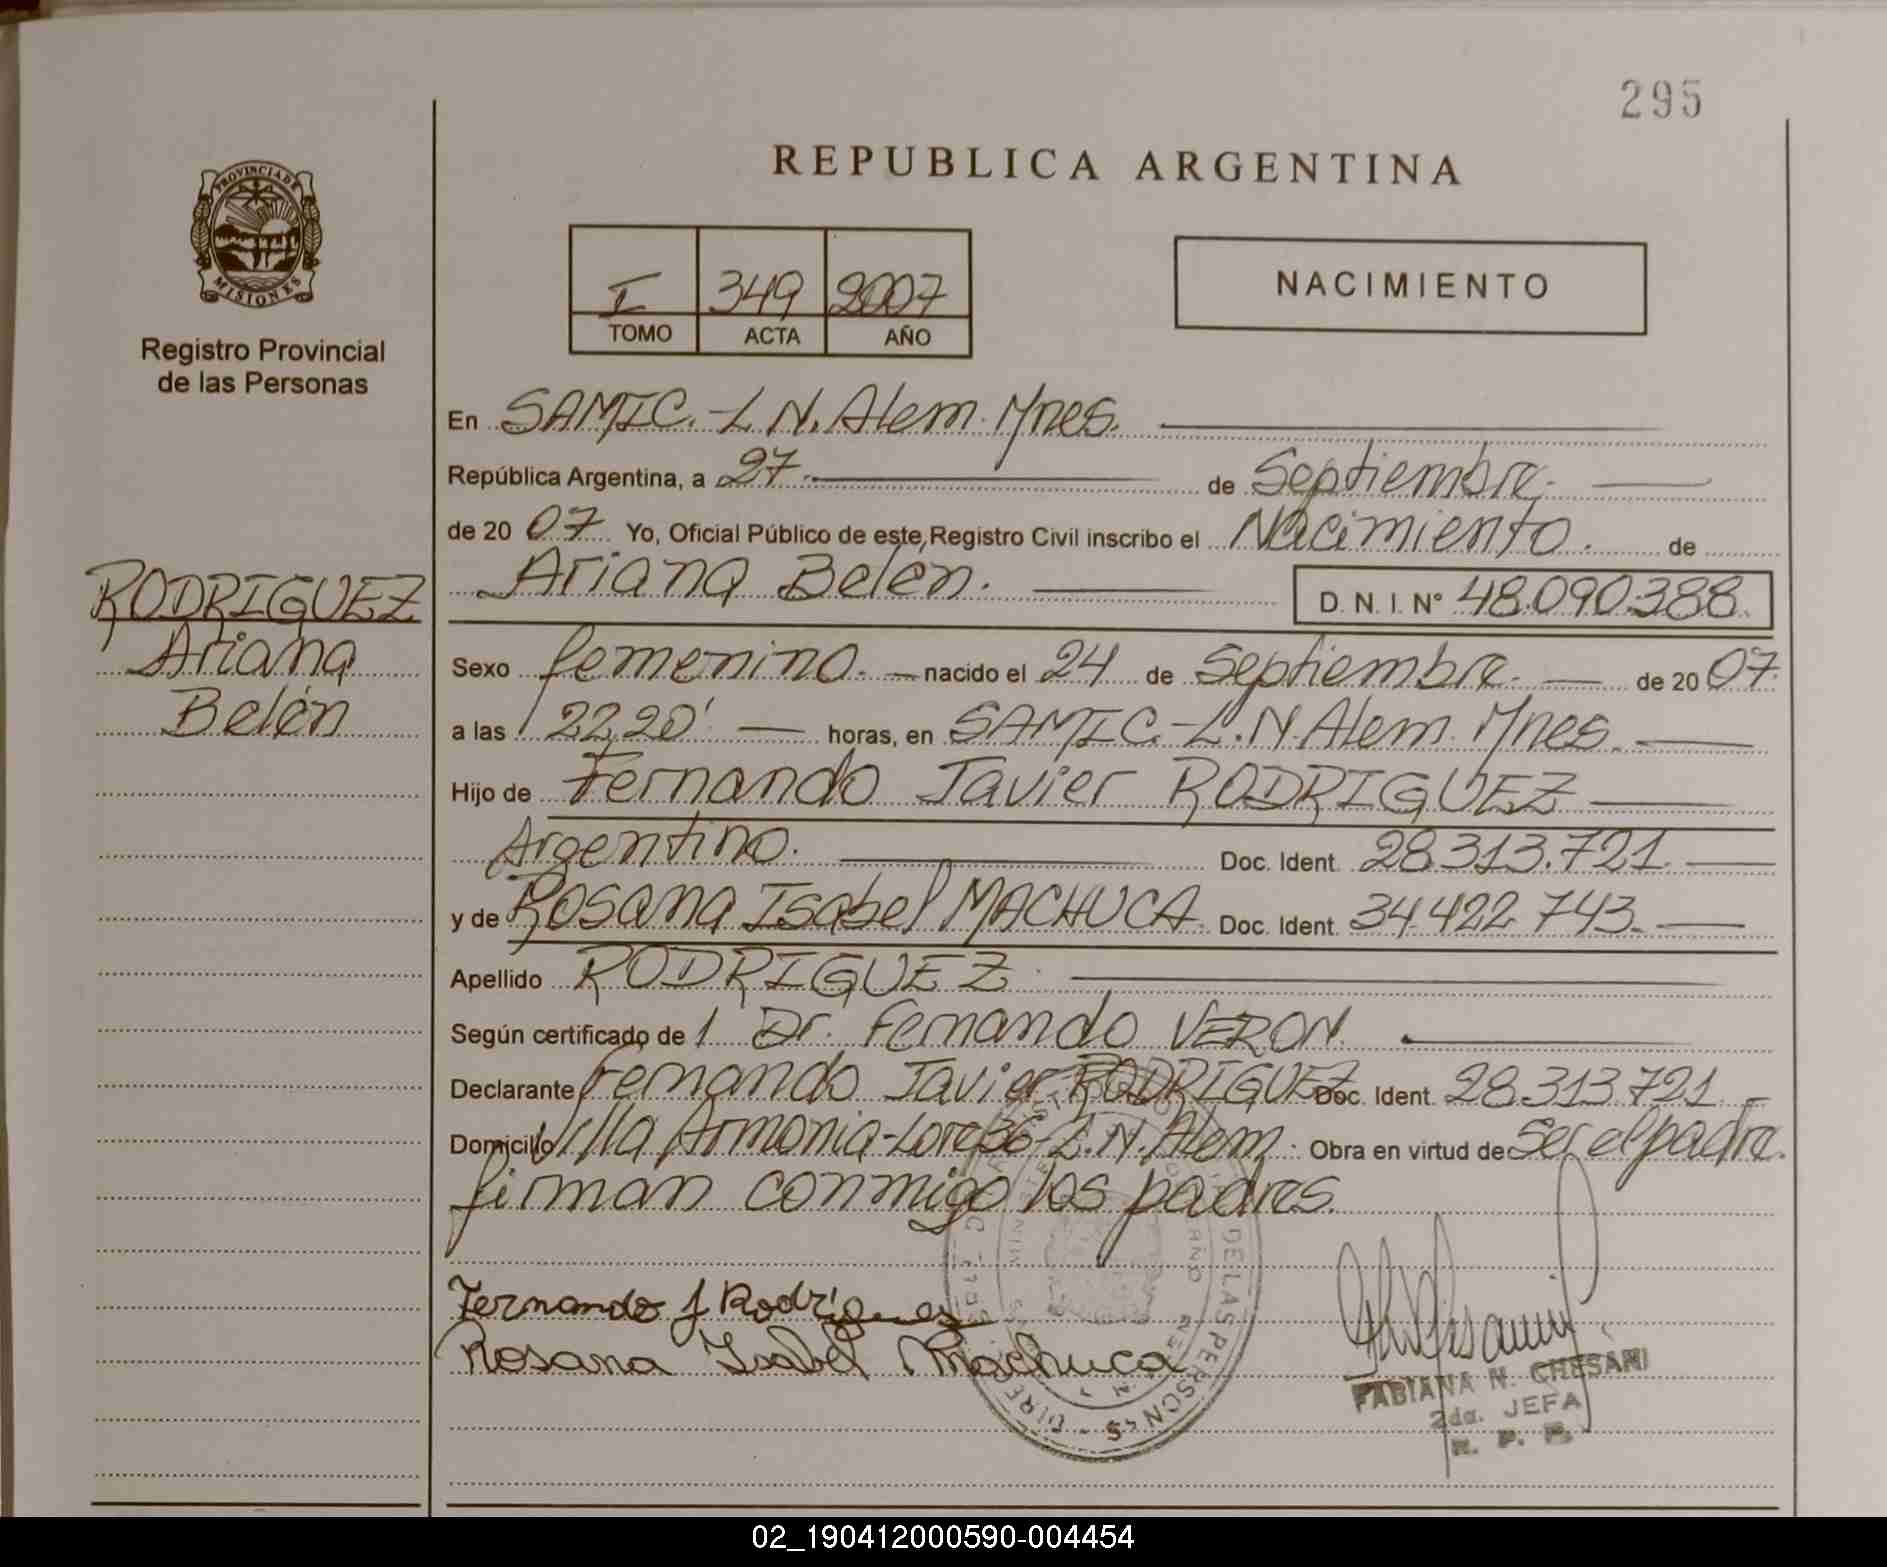 295
REPUBLICA ARGENTINA
PROVINCIA DE
MISIONES
Registro Provincial
de las Personas
I 349 2007
TOMO ACTA AÑO
NACIMIENTO
En SAMIC.-L N. Alem. Mnes.
República Argentina, a 27 de Septiembre.
de 20 07 Yo, Oficial Público de este Registro Civil inscribo el Nacimiento. de
Ariana Belén. D. N. I. N° 48.090.388.
RODRIGUEZ
Ariana
Belén
Sexo femenino. nacido el 24 de Septiembre. de 20 07.
a las 22,20' horas, en SAMIC.-L.N. Alem. Mnes.
Hijo de Fernando Javier RODRIGUEZ
Argentino. Doc. Ident. 28.313.721.
y de Rosana Isabel MACHUCA. Doc. Ident. 34.422.743.
Apellido RODRIGUEZ.
Según certificado de Dr. Fernando VERON.
Declarante Fernando Javier RODRIGUEZ Doc. Ident. 28.313.721.
Domicilio Villa Armonia- L.N. Alem. Obra en virtud de Ser el padre.
firman conmigo los padres.
Fernando J Rodríguez
Rosana Isabel Machuca
DE LAS PERSONAS
FABIANA N. CHESANI
2da. JEFA
R. P. P.
02_190412000590-004454